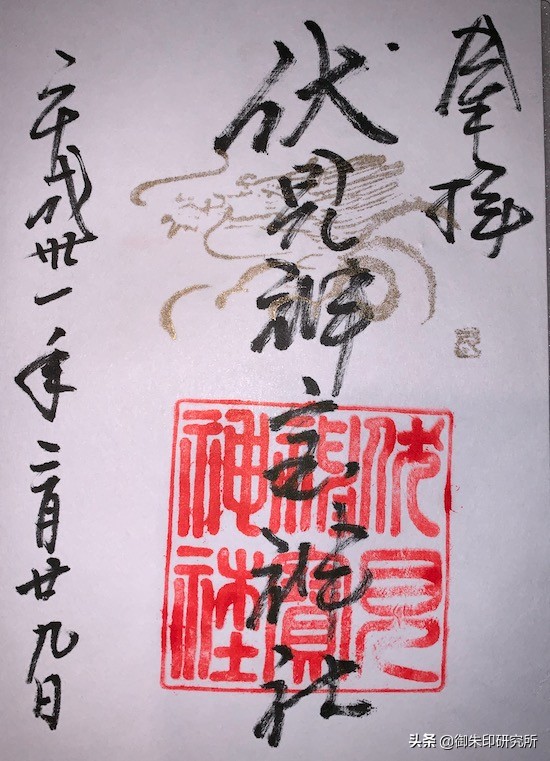 奉拝
伏見神宝神社
伏見
神寶
神社
平成卅一年 月廿九日
头条 @御朱印研究所